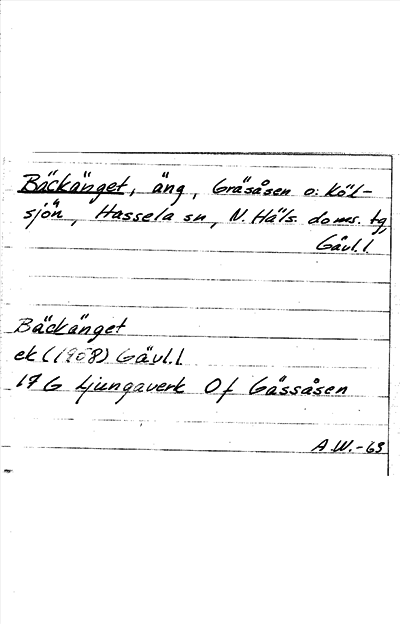 Bäckänget, äng, Gräsåsen o. Köl-
sjön, Hassela sn, N. Häls. doms. tg,
Gävl.l
Bäckänget
ek (1958) Gävl.l
17 G Ljungaverk Of Gässåsen
A.W.-63